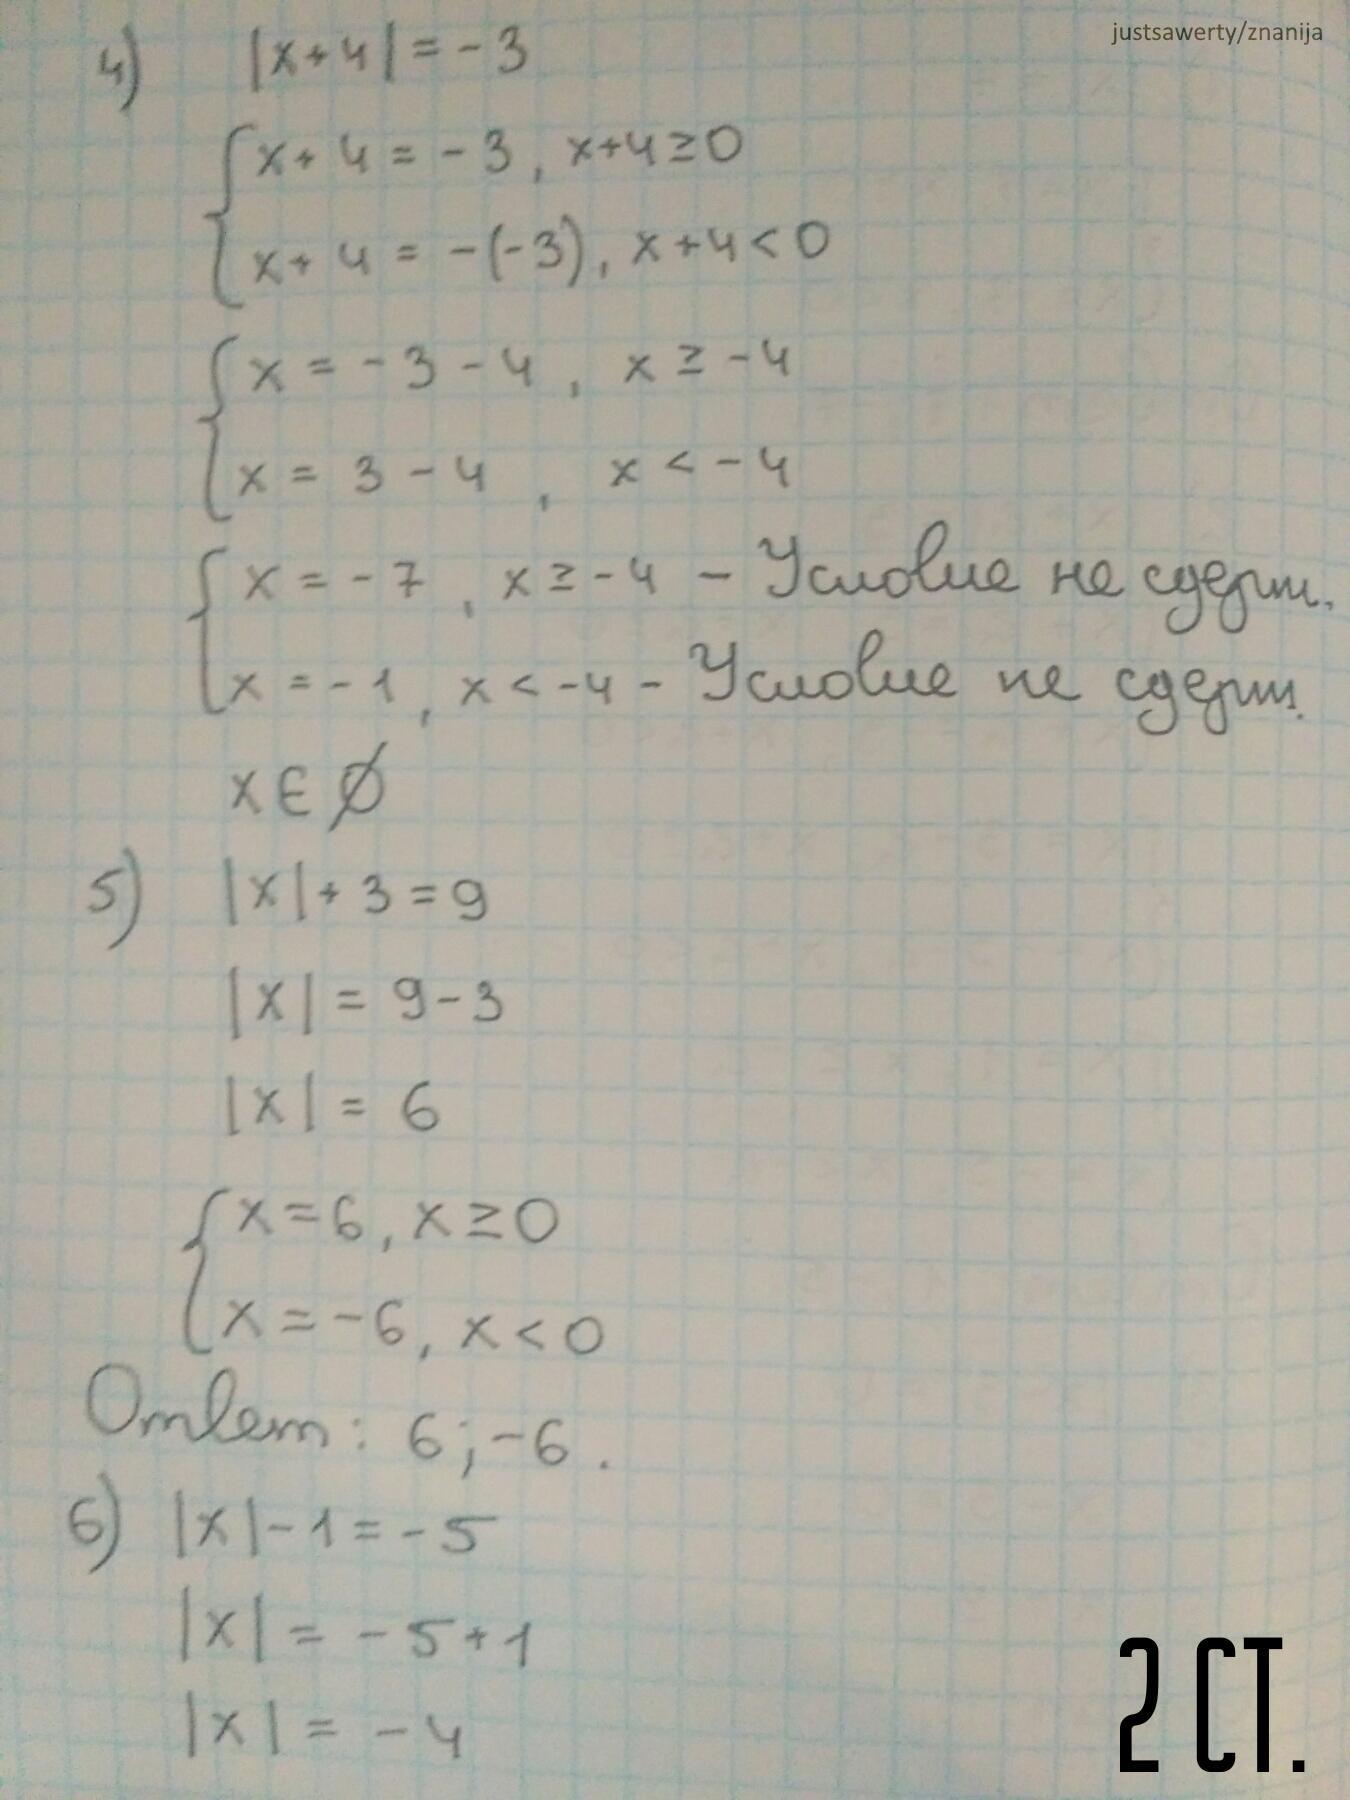 justsawerty/znanija
4) |x+4| = -3
x+4 = -3, x+4≥0
x+4 = -(-3), x+4<0
x = -3-4, x ≥ -4
x = 3-4, x < -4
x = -7, x ≥ -4 - Условие не сдерж.
x = -1, x < -4 - Условие не сдерж.
x ∈ ∅
5) |x|+3=9
|x| = 9-3
|x| = 6
x=6, x≥0
x=-6, x<0
Ответ: 6; -6.
6) |x|-1=-5
|x| = -5+1
|x| = -4
2 СТ.